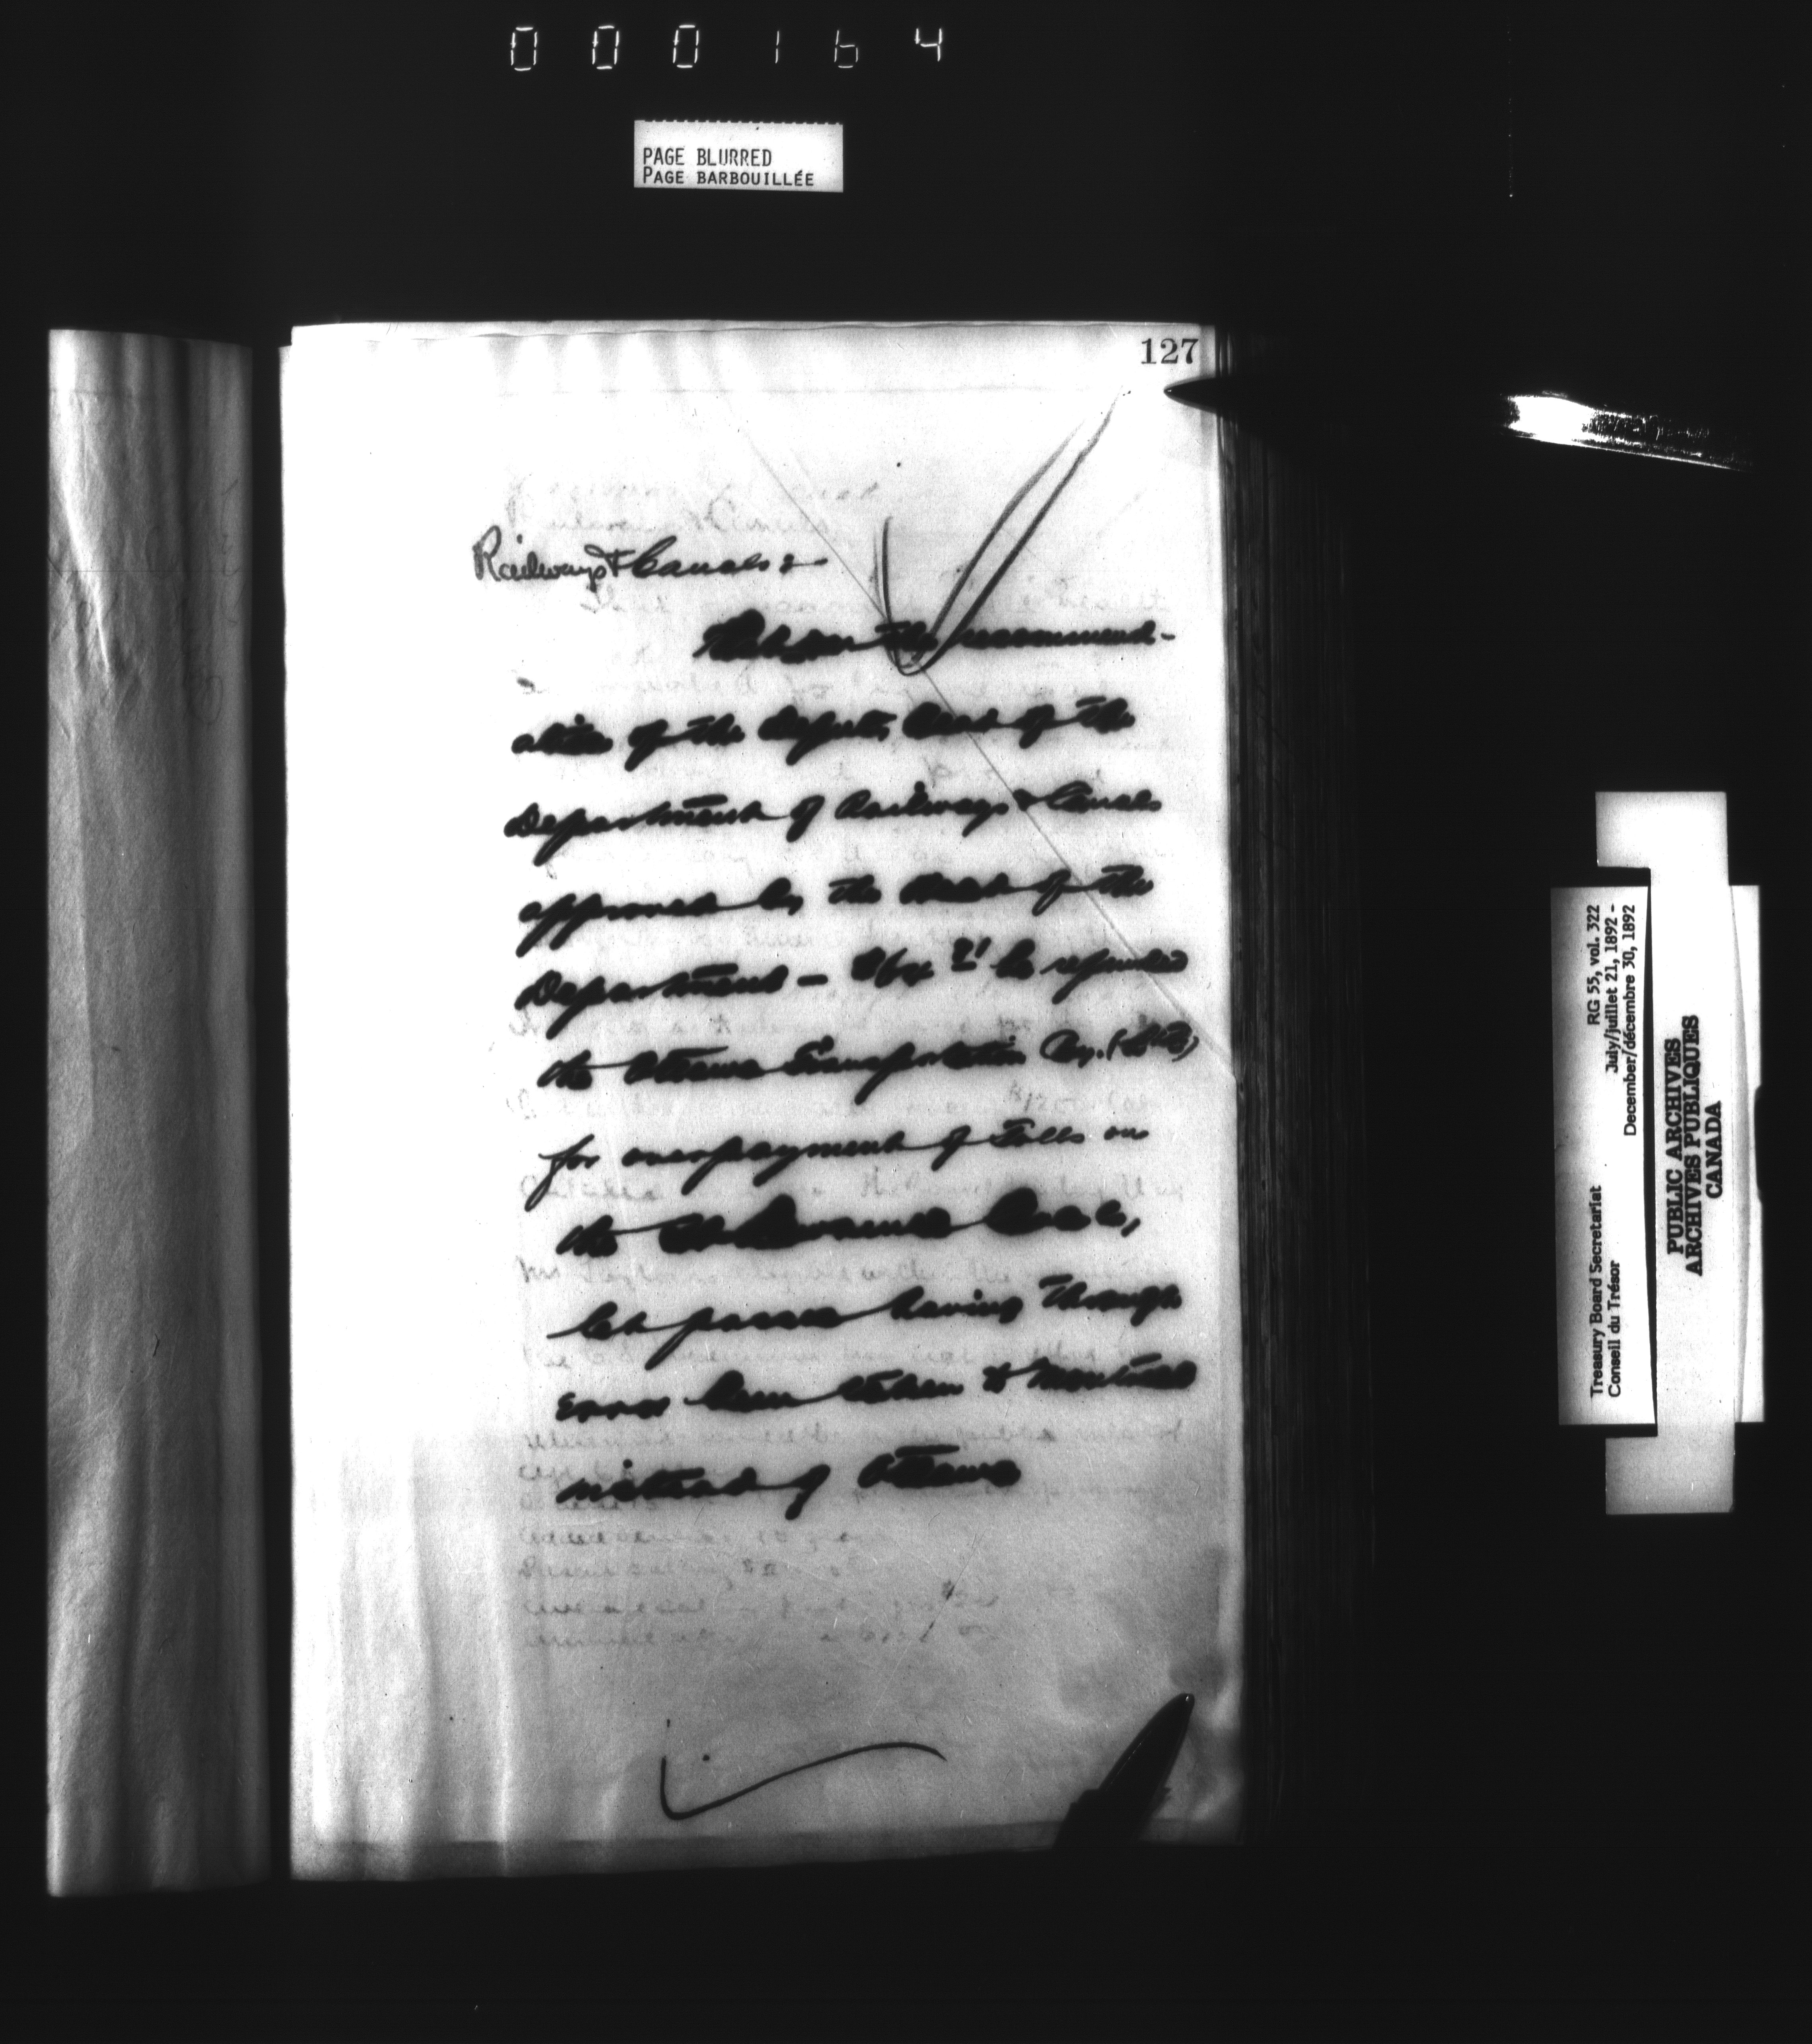 000164
PAGE BLURRED
PAGE BARBOUILLÉE
127
Railways & Canals :-
That on the recommend-
ation of the Deputy Head of the
Department of Railways & Canals
approved by the Head of the
Department - be refunded
the Ottawa Transportation Coy. (Ltd)
for overpayment of Tolls on
the St Lawrence Canals,
let passes having through
error been taken to Montreal
instead of Ottawa
Treasury Board Secretariat RG 55, vol. 322
Conseil du Trésor July/juillet 21, 1892 -
December/décembre 30, 1892
PUBLIC ARCHIVES
ARCHIVES PUBLIQUES
CANADA